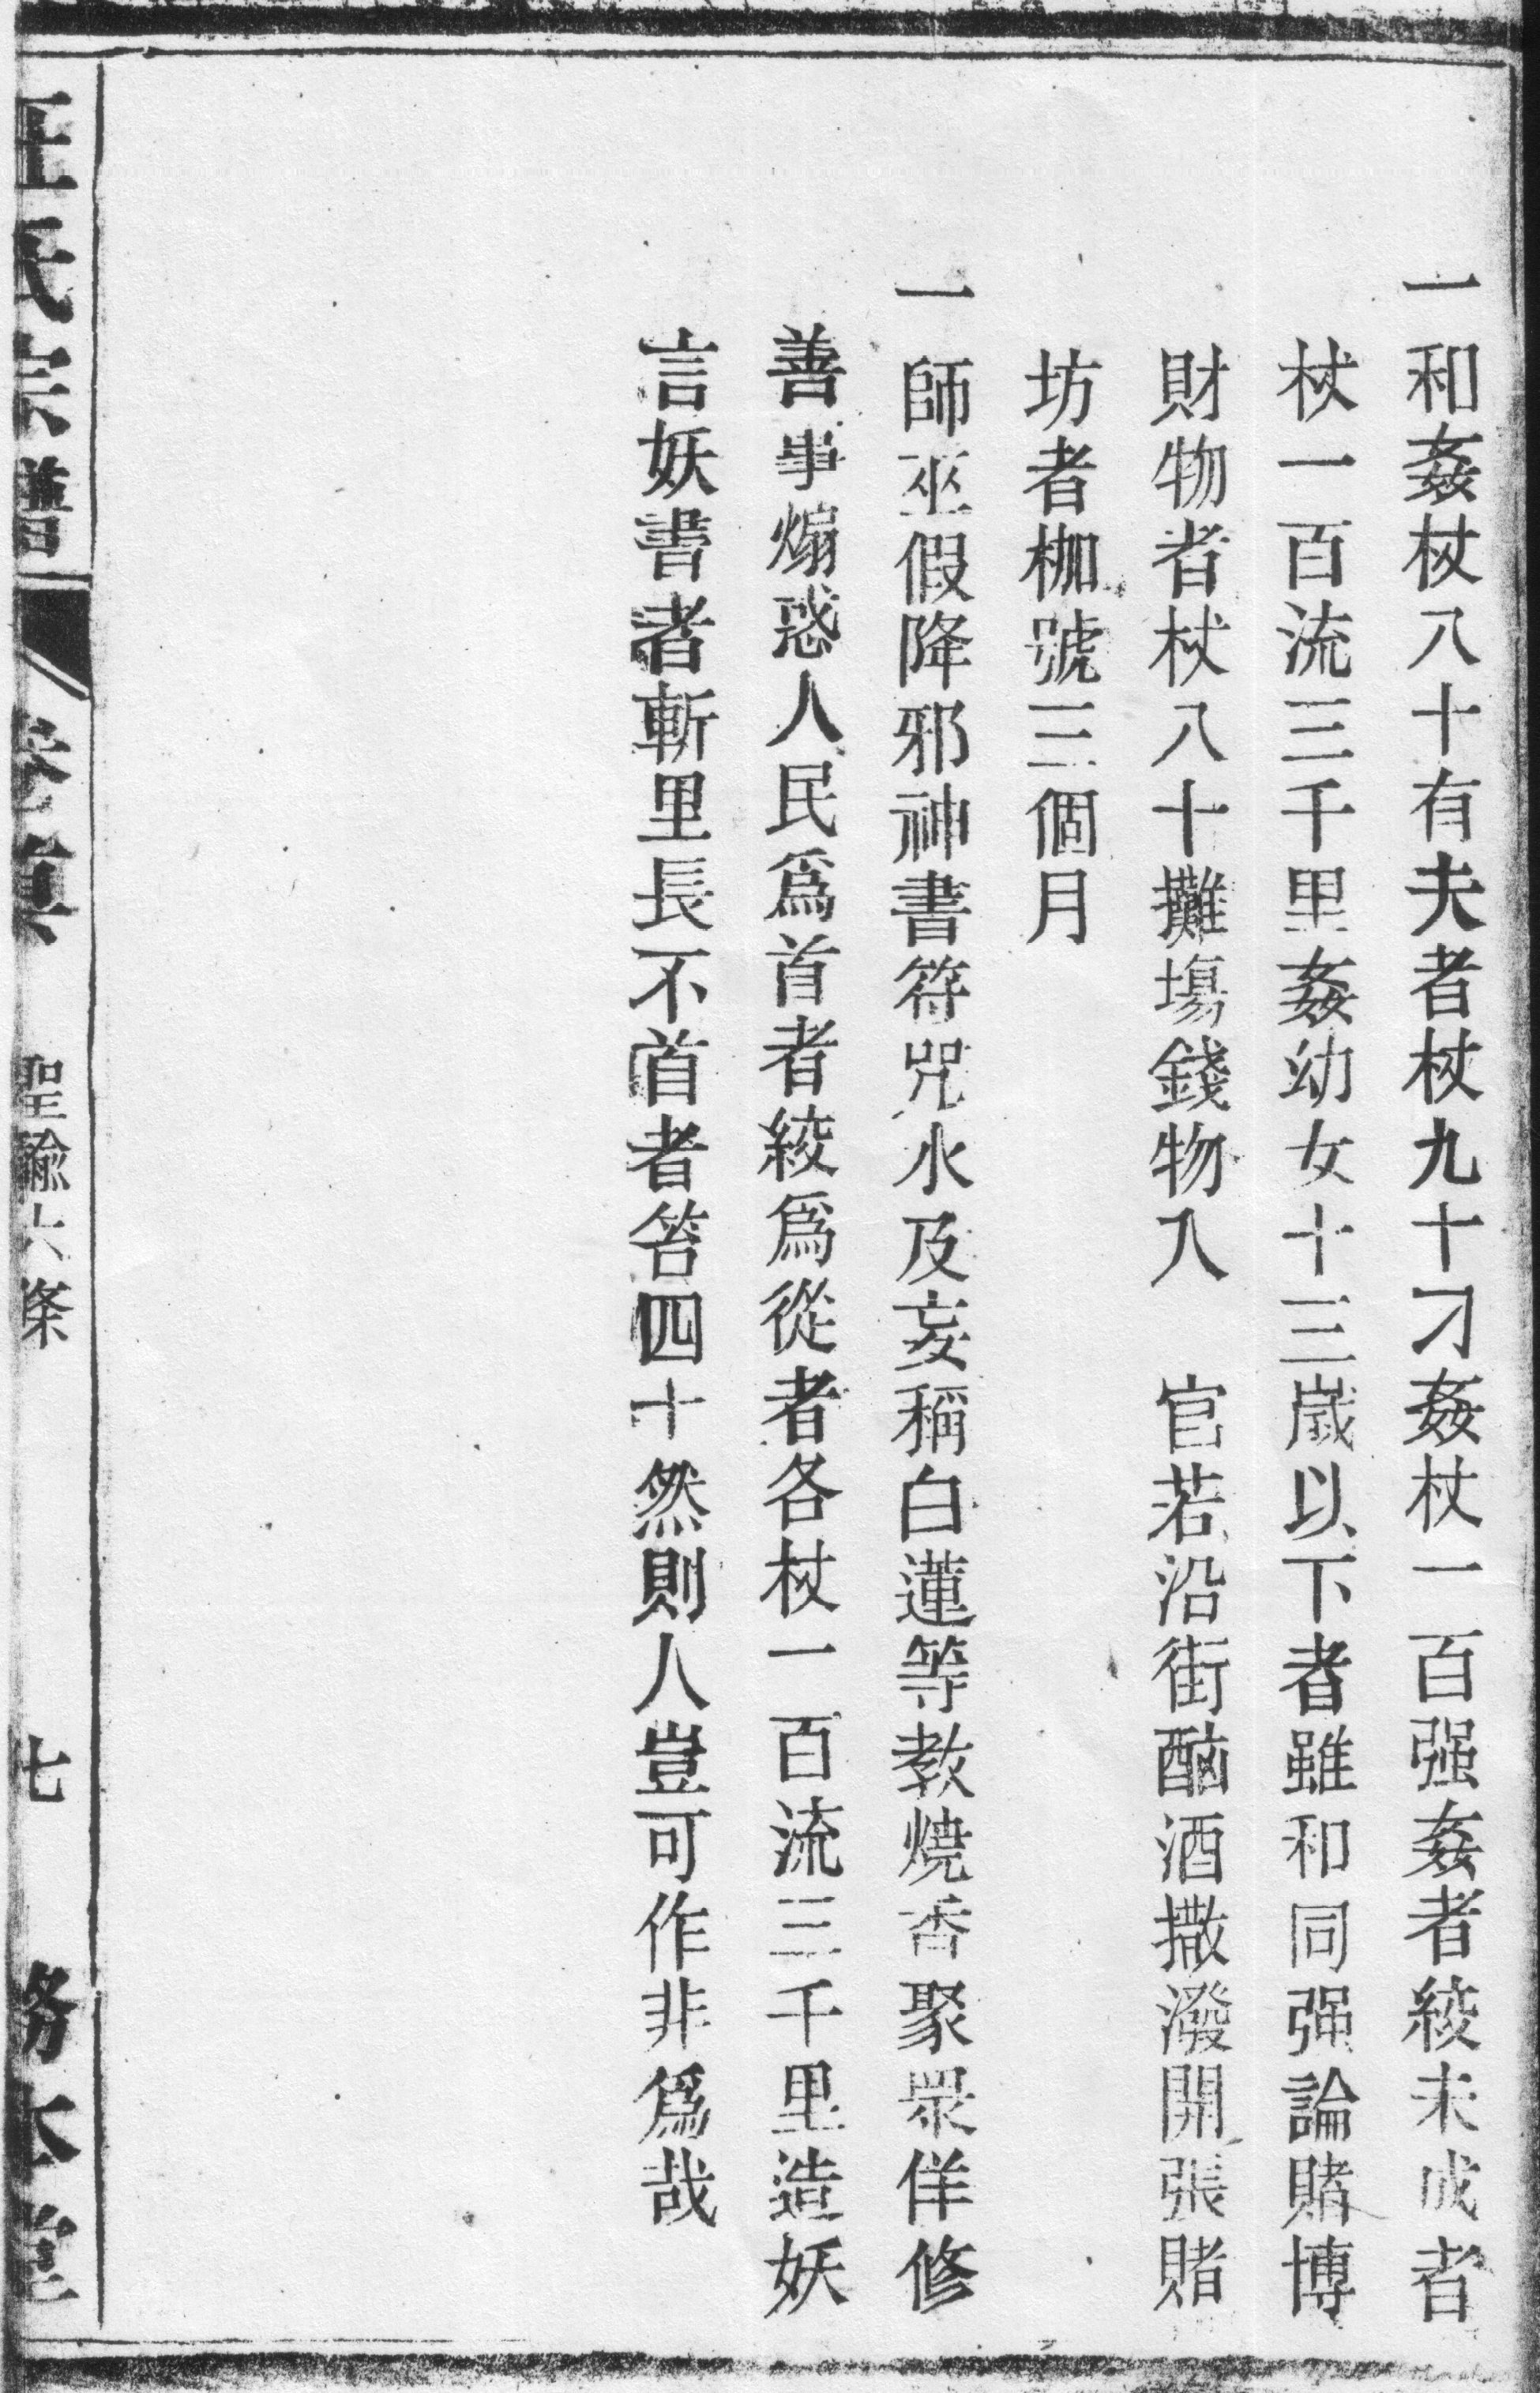 一和姦杖八十有夫者杖九十刁姦杖一百强姦者絞未成者
杖一百流三千里姦幼女十三歲以下者雖和同强論賭博
財物者杖八十攤塲錢物入　官若沿街酗酒撒潑開張賭
坊者枷號三個月
一師巫假降邪神書符咒水及妄稱白蓮等教燒香聚眾佯修
善事煽惑人民爲首者絞爲從者各杖一百流三千里造妖
言妖書者斬里長不首者笞四十然則人豈可作非爲哉
汪氏宗譜　卷眞　聖諭六條　七　務本堂